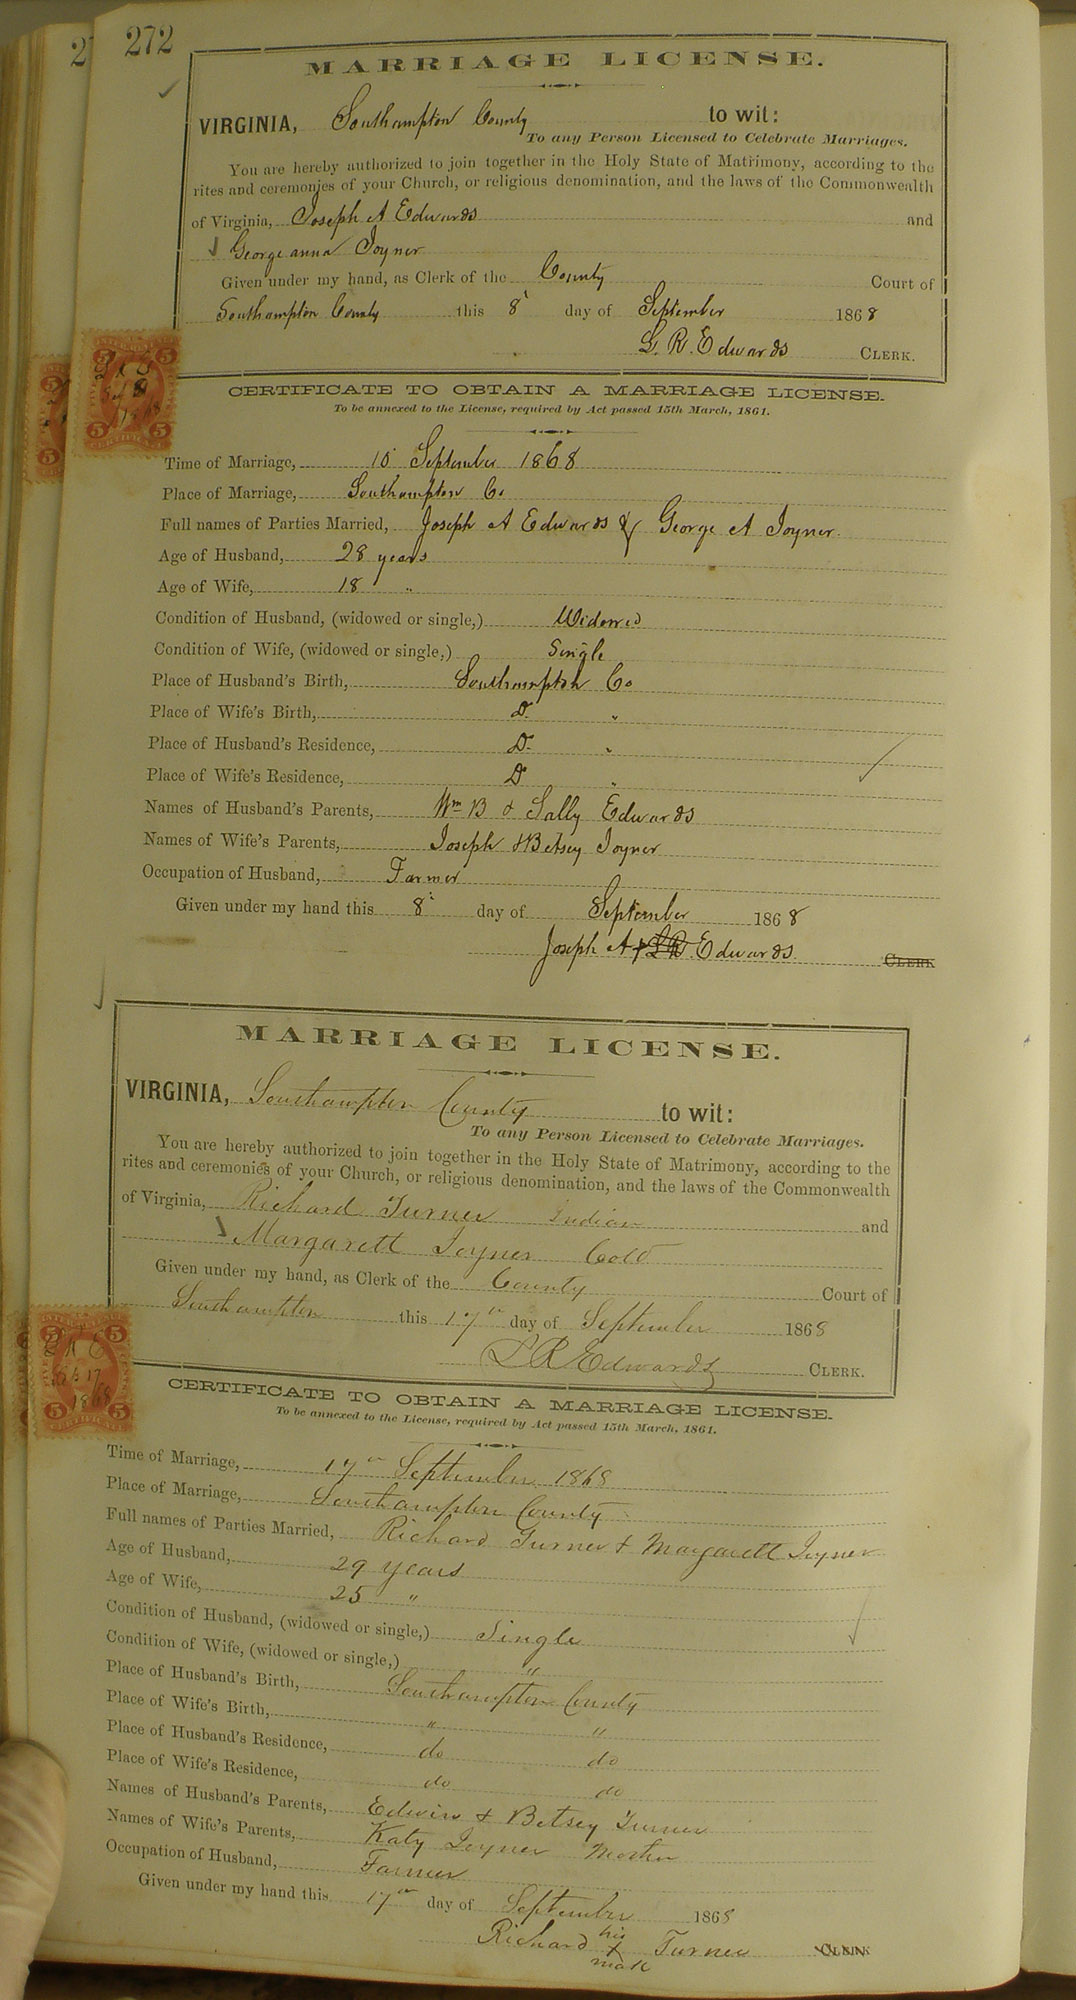 272
MARRIAGE LICENSE.
VIRGINIA, Southampton County to wit:
To any Person Licensed to Celebrate Marriages.
You are hereby authorized to join together in the Holy State of Matrimony, according to the
rites and ceremonies of your Church, or religious denomination, and the laws of the Commonwealth
of Virginia, Joseph A Edwards and
Georgeanna Joyner
Given under my hand, as Clerk of the County Court of
Southampton County this 8 day of September 1868
L. R. Edwards CLERK.
CERTIFICATE TO OBTAIN A MARRIAGE LICENSE.
To be annexed to the License, required by Act passed 15th March, 1861.
Time of Marriage, 10 September 1868
Place of Marriage, Southampton Co
Full names of Parties Married, Joseph A Edwards & George A Joyner.
Age of Husband, 28 years
Age of Wife, 18 "
Condition of Husband, (widowed or single,) Widowed
Condition of Wife, (widowed or single,) Single
Place of Husband's Birth, Southampton Co
Place of Wife's Birth, Do "
Place of Husband's Residence, Do "
Place of Wife's Residence, Do "
Names of Husband's Parents, Wm B & Sally Edwards
Names of Wife's Parents, Joseph & Betsey Joyner
Occupation of Husband, Farmer
Given under my hand this 8 day of September 1868
Joseph A Edwards. CLERK
MARRIAGE LICENSE.
VIRGINIA, Southampton County to wit:
To any Person Licensed to Celebrate Marriages.
You are hereby authorized to join together in the Holy State of Matrimony, according to the
rites and ceremonies of your Church, or religious denomination, and the laws of the Commonwealth
of Virginia, Richard Turner Indian and
Margarett Joyner Cold
Given under my hand, as Clerk of the County Court of
Southampton this 17th day of September 1868
L R Edwards CLERK.
CERTIFICATE TO OBTAIN A MARRIAGE LICENSE.
To be annexed to the License, required by Act passed 15th March, 1861.
Time of Marriage, 17th September 1868
Place of Marriage, Southampton County
Full names of Parties Married, Richard Turner & Margarett Joyner
Age of Husband, 29 years
Age of Wife, 25 "
Condition of Husband, (widowed or single,) Single
Condition of Wife, (widowed or single,) "
Place of Husband's Birth, Southampton County
Place of Wife's Birth, " "
Place of Husband's Residence, do do
Place of Wife's Residence, do do
Names of Husband's Parents, Edwin & Betsey Turner
Names of Wife's Parents, Katy Joyner Mother
Occupation of Husband, Farmer
Given under my hand this 17th day of September 1868
Richard his x mark Turner CLERK